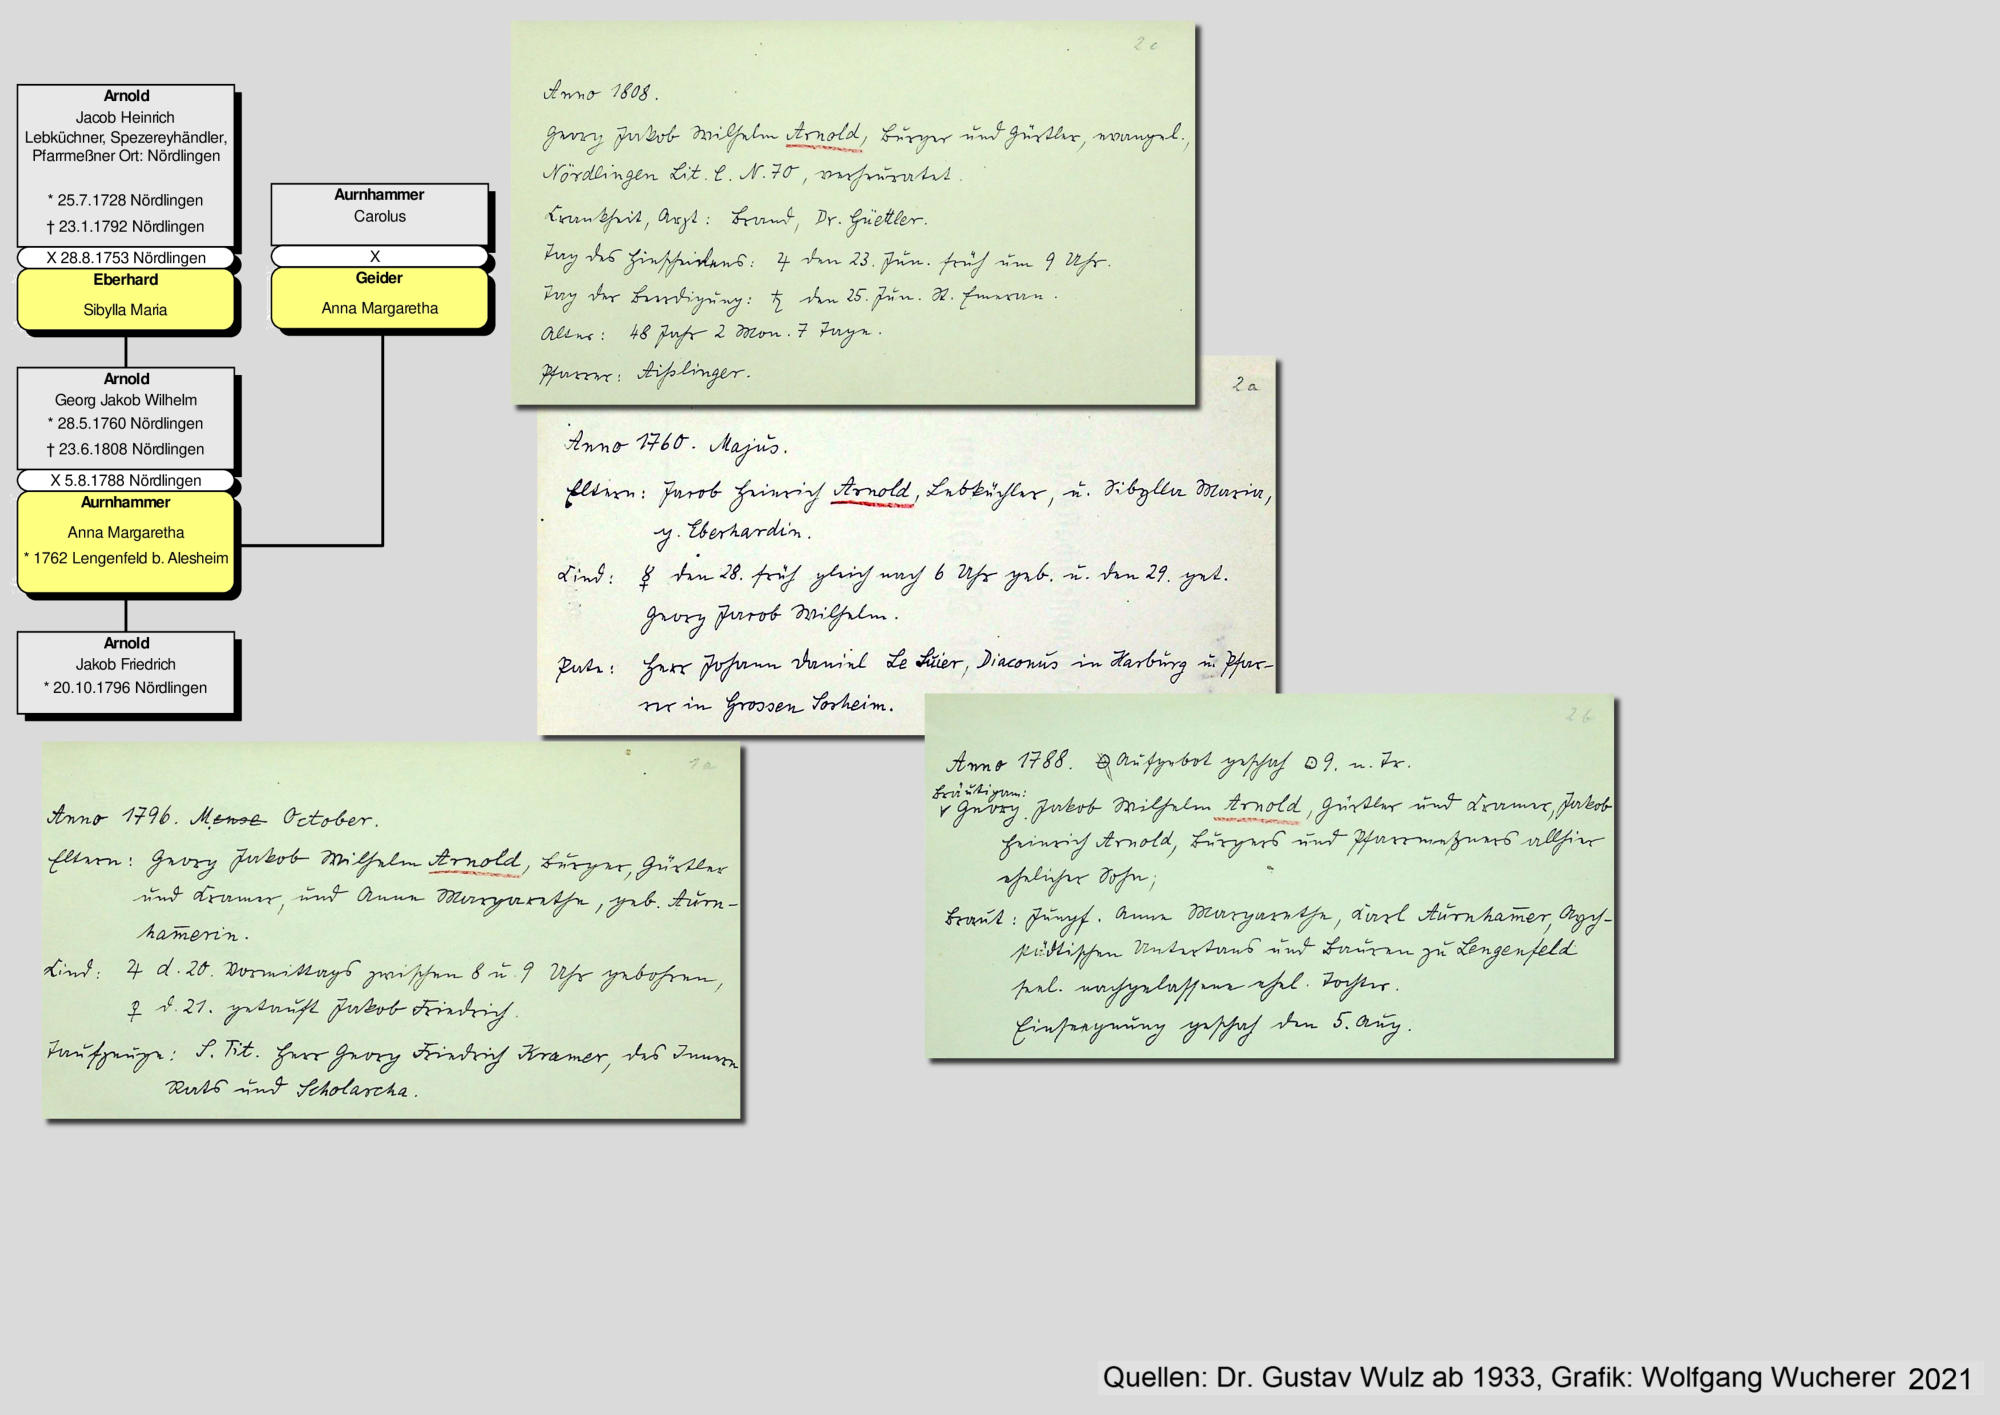 Arnold
Jacob Heinrich
Lebküchner, Spezereyhändler,
Pfarrmeßner Ort: Nördlingen
* 25.7.1728 Nördlingen
† 23.1.1792 Nördlingen
X 28.8.1753 Nördlingen
Eberhard
Sibylla Maria
Aurnhammer
Carolus
X
Geider
Anna Margaretha
Arnold
Georg Jakob Wilhelm
* 28.5.1760 Nördlingen
† 23.6.1808 Nördlingen
X 5.8.1788 Nördlingen
Aurnhammer
Anna Margaretha
* 1762 Lengenfeld b. Alesheim
Arnold
Jakob Friedrich
* 20.10.1796 Nördlingen
2c
Anno 1808.
Georg Jakob Wilhelm Arnold, Burger und Gürtler, evangel.,
Nördlingen Lit. C. N. 70, verheuratet.
Krankheit, Arzt: Brand, Dr. Güettler.
Tag des Hinscheidens: ♃ den 23. Jun. früh um 9 Uhr.
Tag der Beerdigung: ♄ den 25. Jun. St. Emeran.
Alter: 48 Jahr 2 Mon. 7 Tage.
Pfarrer: Aißlinger.
2a
Anno 1760. Majus.
Eltern: Jacob Heinrich Arnold, Lebküchler, u. Sibylla Maria,
g. Eberhardin.
Kind: ☿ den 28. früh gleich nach 6 Uhr geb. u. den 29. get.
Georg Jacob Wilhelm.
Pate: Herr Johann Daniel Le Suier, Diaconus in Harburg u. Pfar-
rer in Grossen Sorheim.
2b
Anno 1788. Aufgebot geschah ☉ 9. n. Tr.
Bräutigam:
Georg Jakob Wilhelm Arnold, Gürtler und Kramer, Jakob
Heinrich Arnold, Burgers und Pfarrmeßners allhier
ehelicher Sohn;
Braut: Jungf. Anna Margaretha, Karl Aurnham̅er, Aych-
städtischen Untertans und Bauren zu Lengenfeld
seel. nachgelassene ehel. Tochter.
Einseegnung geschah den 5. Aug.
1a
Anno 1796. Mense October.
Eltern: Georg Jakob Wilhelm Arnold, Burger, Gürtler
und Kramer, und Anna Margaretha, geb. Aurn-
ham̅erin.
Kind: ♃ d. 20. Vormittags zwischen 8 u. 9 Uhr gebohren,
♀ d. 21. getauft Jakob Friedrich.
Taufzeuge: S. Tit. Herr Georg Friedrich Kramer, des Innern
Rats und Scholarcha.
Quellen: Dr. Gustav Wulz ab 1933, Grafik: Wolfgang Wucherer 2021